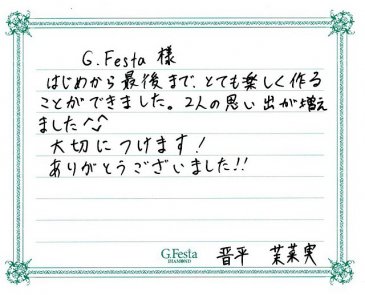 G.Festa 様
はじめから最後まで、とても楽しく作る
ことができました。2人の思い出が増え
ました^^
大切につけます!
ありがとうございました!!
G.Festa
DIAMOND
晋平 茉菜実